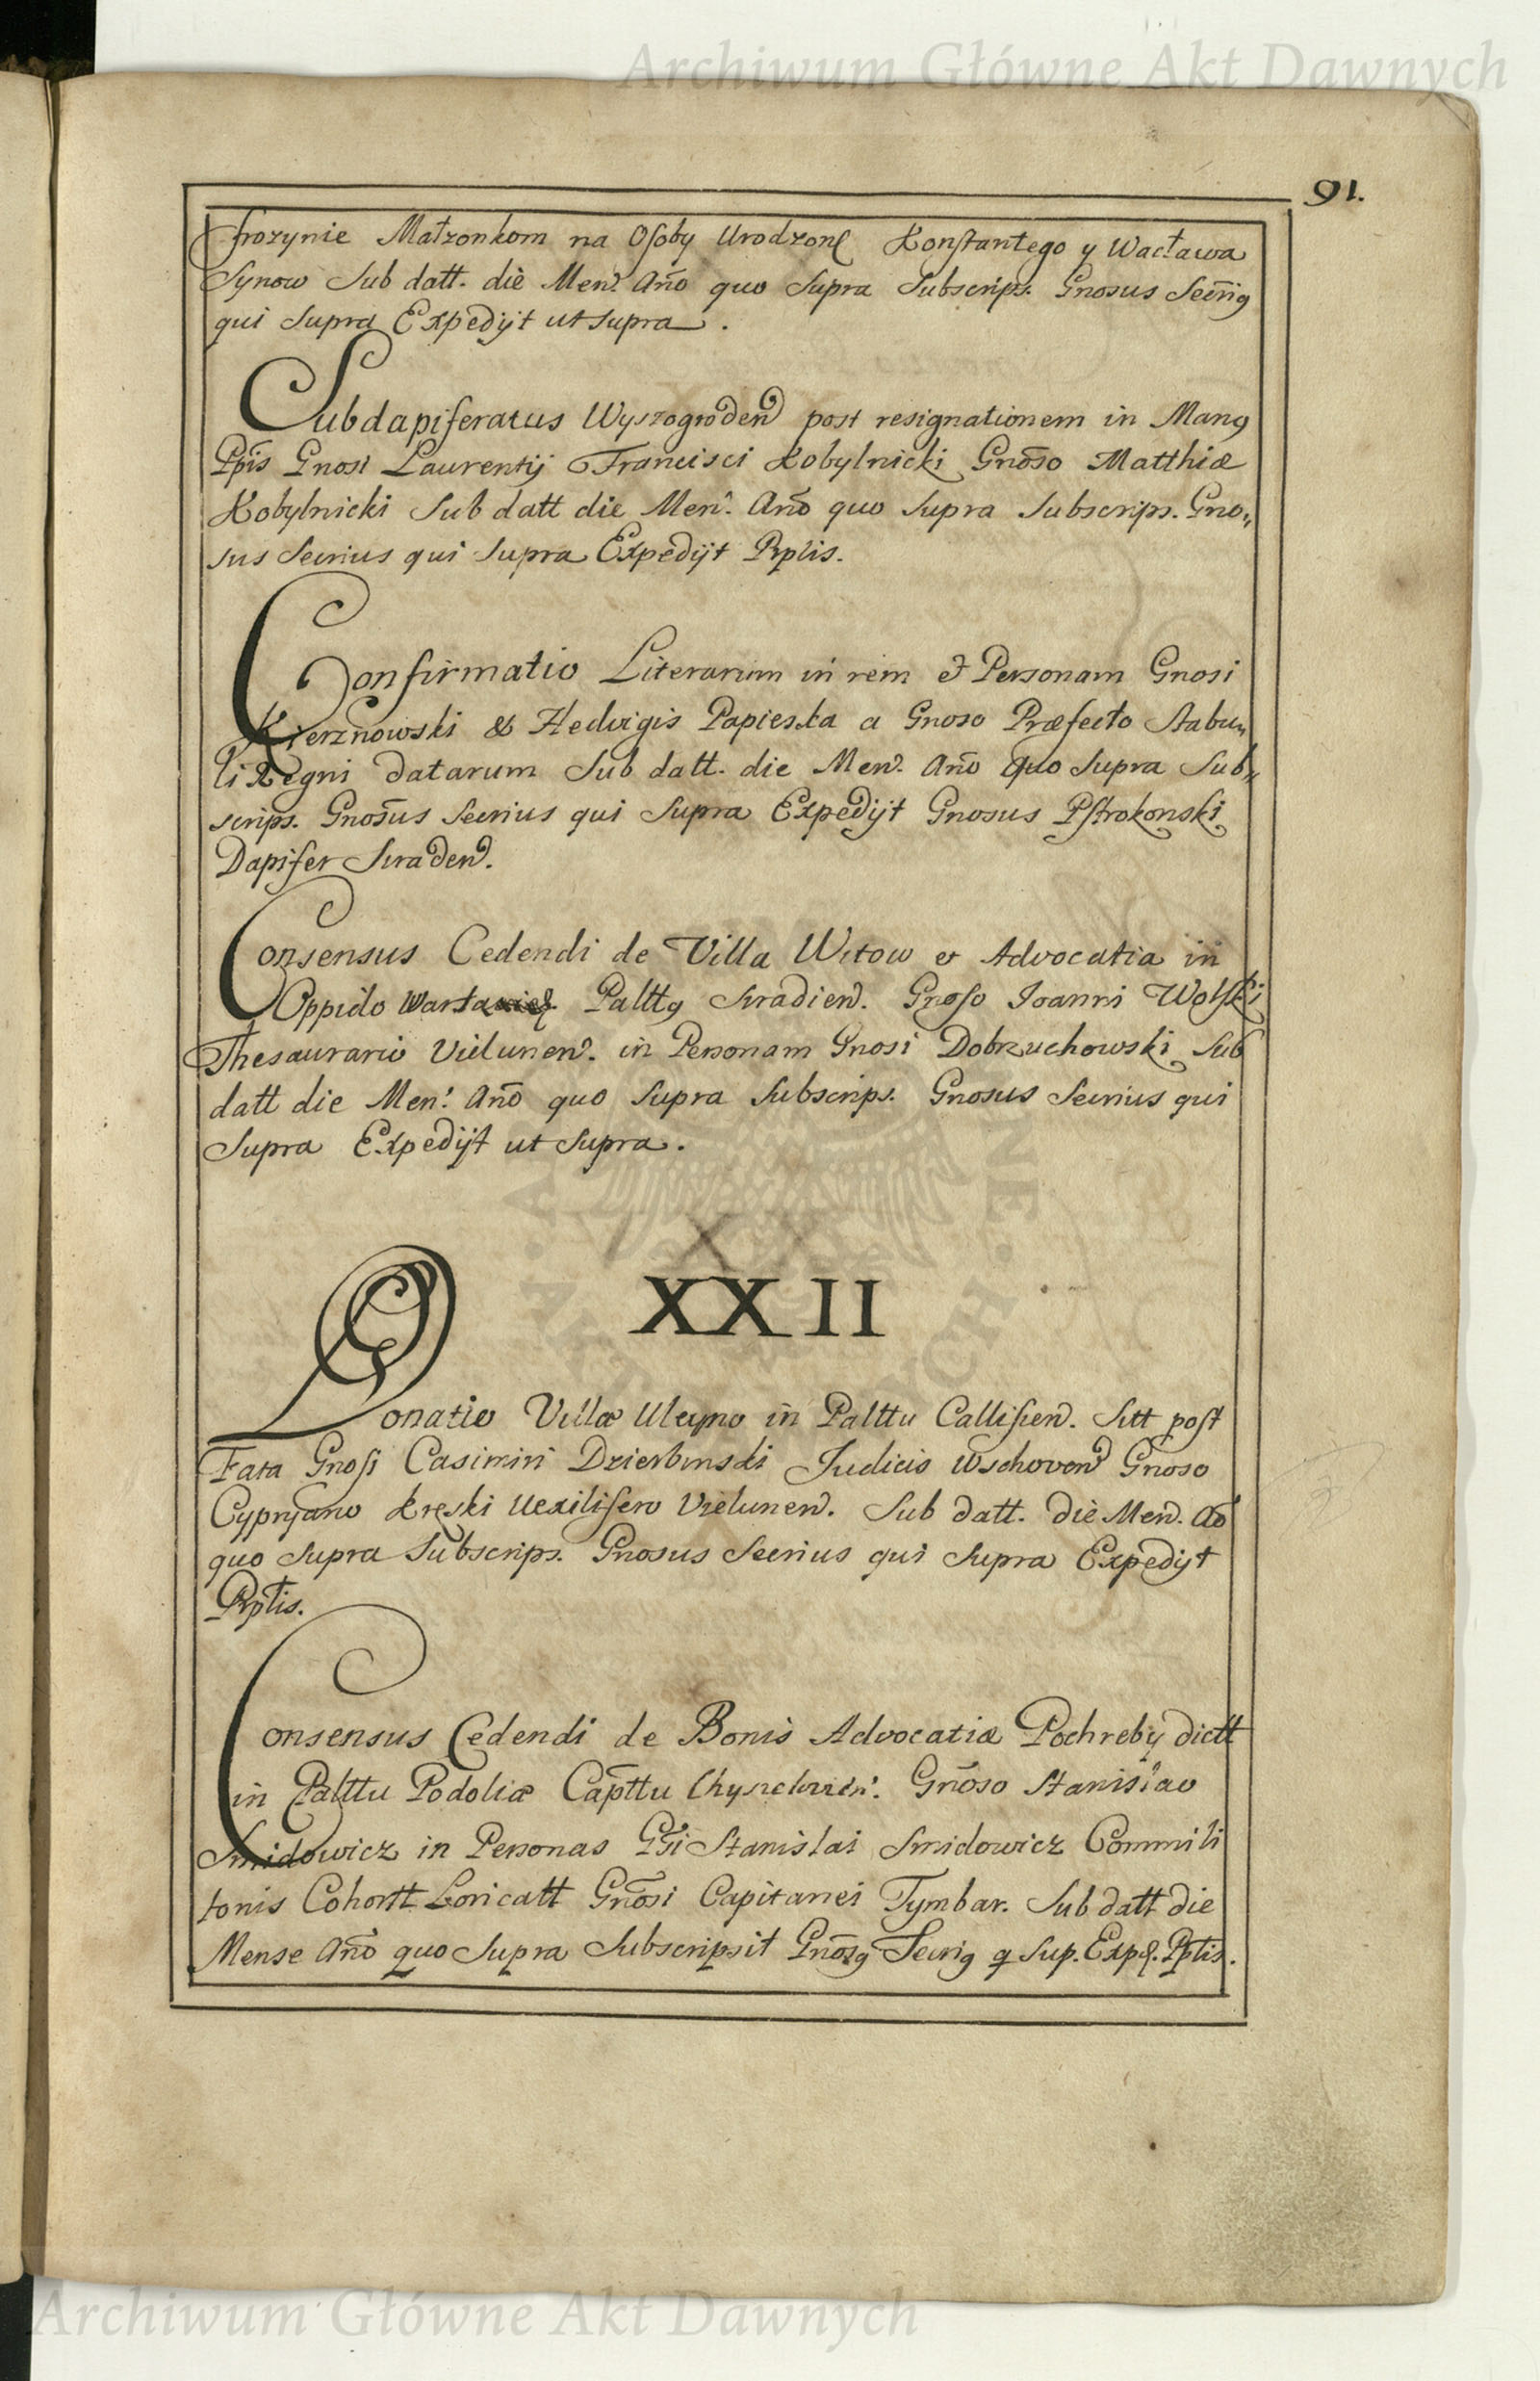 Archiwum Główne Akt Dawnych
91.
frozynie Małzonkom na Osoby Urodzone Konstantego y Wacława
Synow Sub datt. die Men. Año quo Supra Subscrips. Gnosus Secrig
qui Supra Expedijt ut supra.
Subdapiferatus Wyszogroden post resignationem in Mang
Ppis Gnosi Laurentij Francisci Kobylnicki Gnoso Matthiæ
Kobylnicki Sub datt die Men. Año quo Supra Subscrips. Gno„
sus Secrius qui Supra Expedijt Rplis.
Confirmatio Literarum in rem & Personam Gnosi
Kierznowski & Hedvigis Papieska a Gnoso Præfecto Stabu„
li Regni datarum Sub datt. die Men. Año quo Supra Sub„
scrips. Gnosus Secrius qui Supra Expedijt Gnosus Pstrokonski
Dapifer Siraden.
Consensus Cedendi de Villa Witow et Advocatia in
Oppido Warta Palttg Siradien. Gnoso Joanni Wolski
Thesaurario Vielunen. in Personam Gnosi Dobruchowski Sub
datt die Men. Año quo Supra Subscrips. Gnosus Secrius qui
Supra Expedijt ut Supra.
XXII
Donatio Villæ Uleyno in Palttu Callisien. Sitt post
Fata Gnosi Casimiri Dzierbinski Judicis Wschoven Gnoso
Cypryano Kręski Vexilifero Vielunen. Sub datt. die Men. Ao
quo Supra Subscrips. Gnosus Secrius qui Supra Expedijt
Rptis.
Consensus Cedendi de Bonis Advocatiæ Pochreby dictt
in Palttu Podoliæ Capttu Gnoso Stanislao
Smidowicz in Personas Stanislai Smidowicz Commili
tonis Cohortt Loricatt Gnosi Capitanei Tymbar. Sub datt die
Mense Año quo Supra Subscripsit Gnosg Secrig q Sup. Exped. Rptis.
Archiwum Główne Akt Dawnych